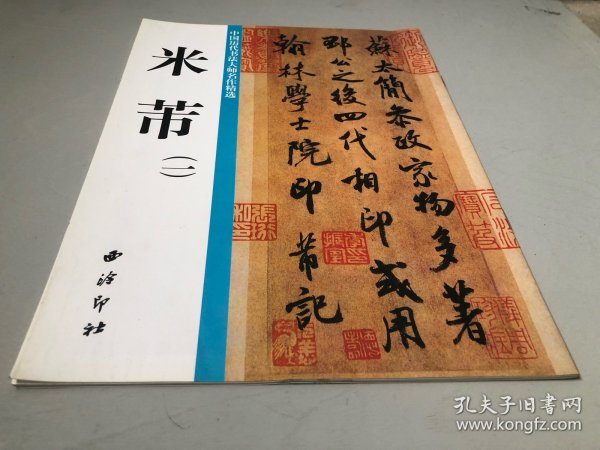 中国历代书法大师名作精选
米芾
(一)
西泠印社
蘇太簡叅政家物多著
邳公之後四代相印或用
翰林學士院印芾記
孔夫子旧书网
www.kongfz.com